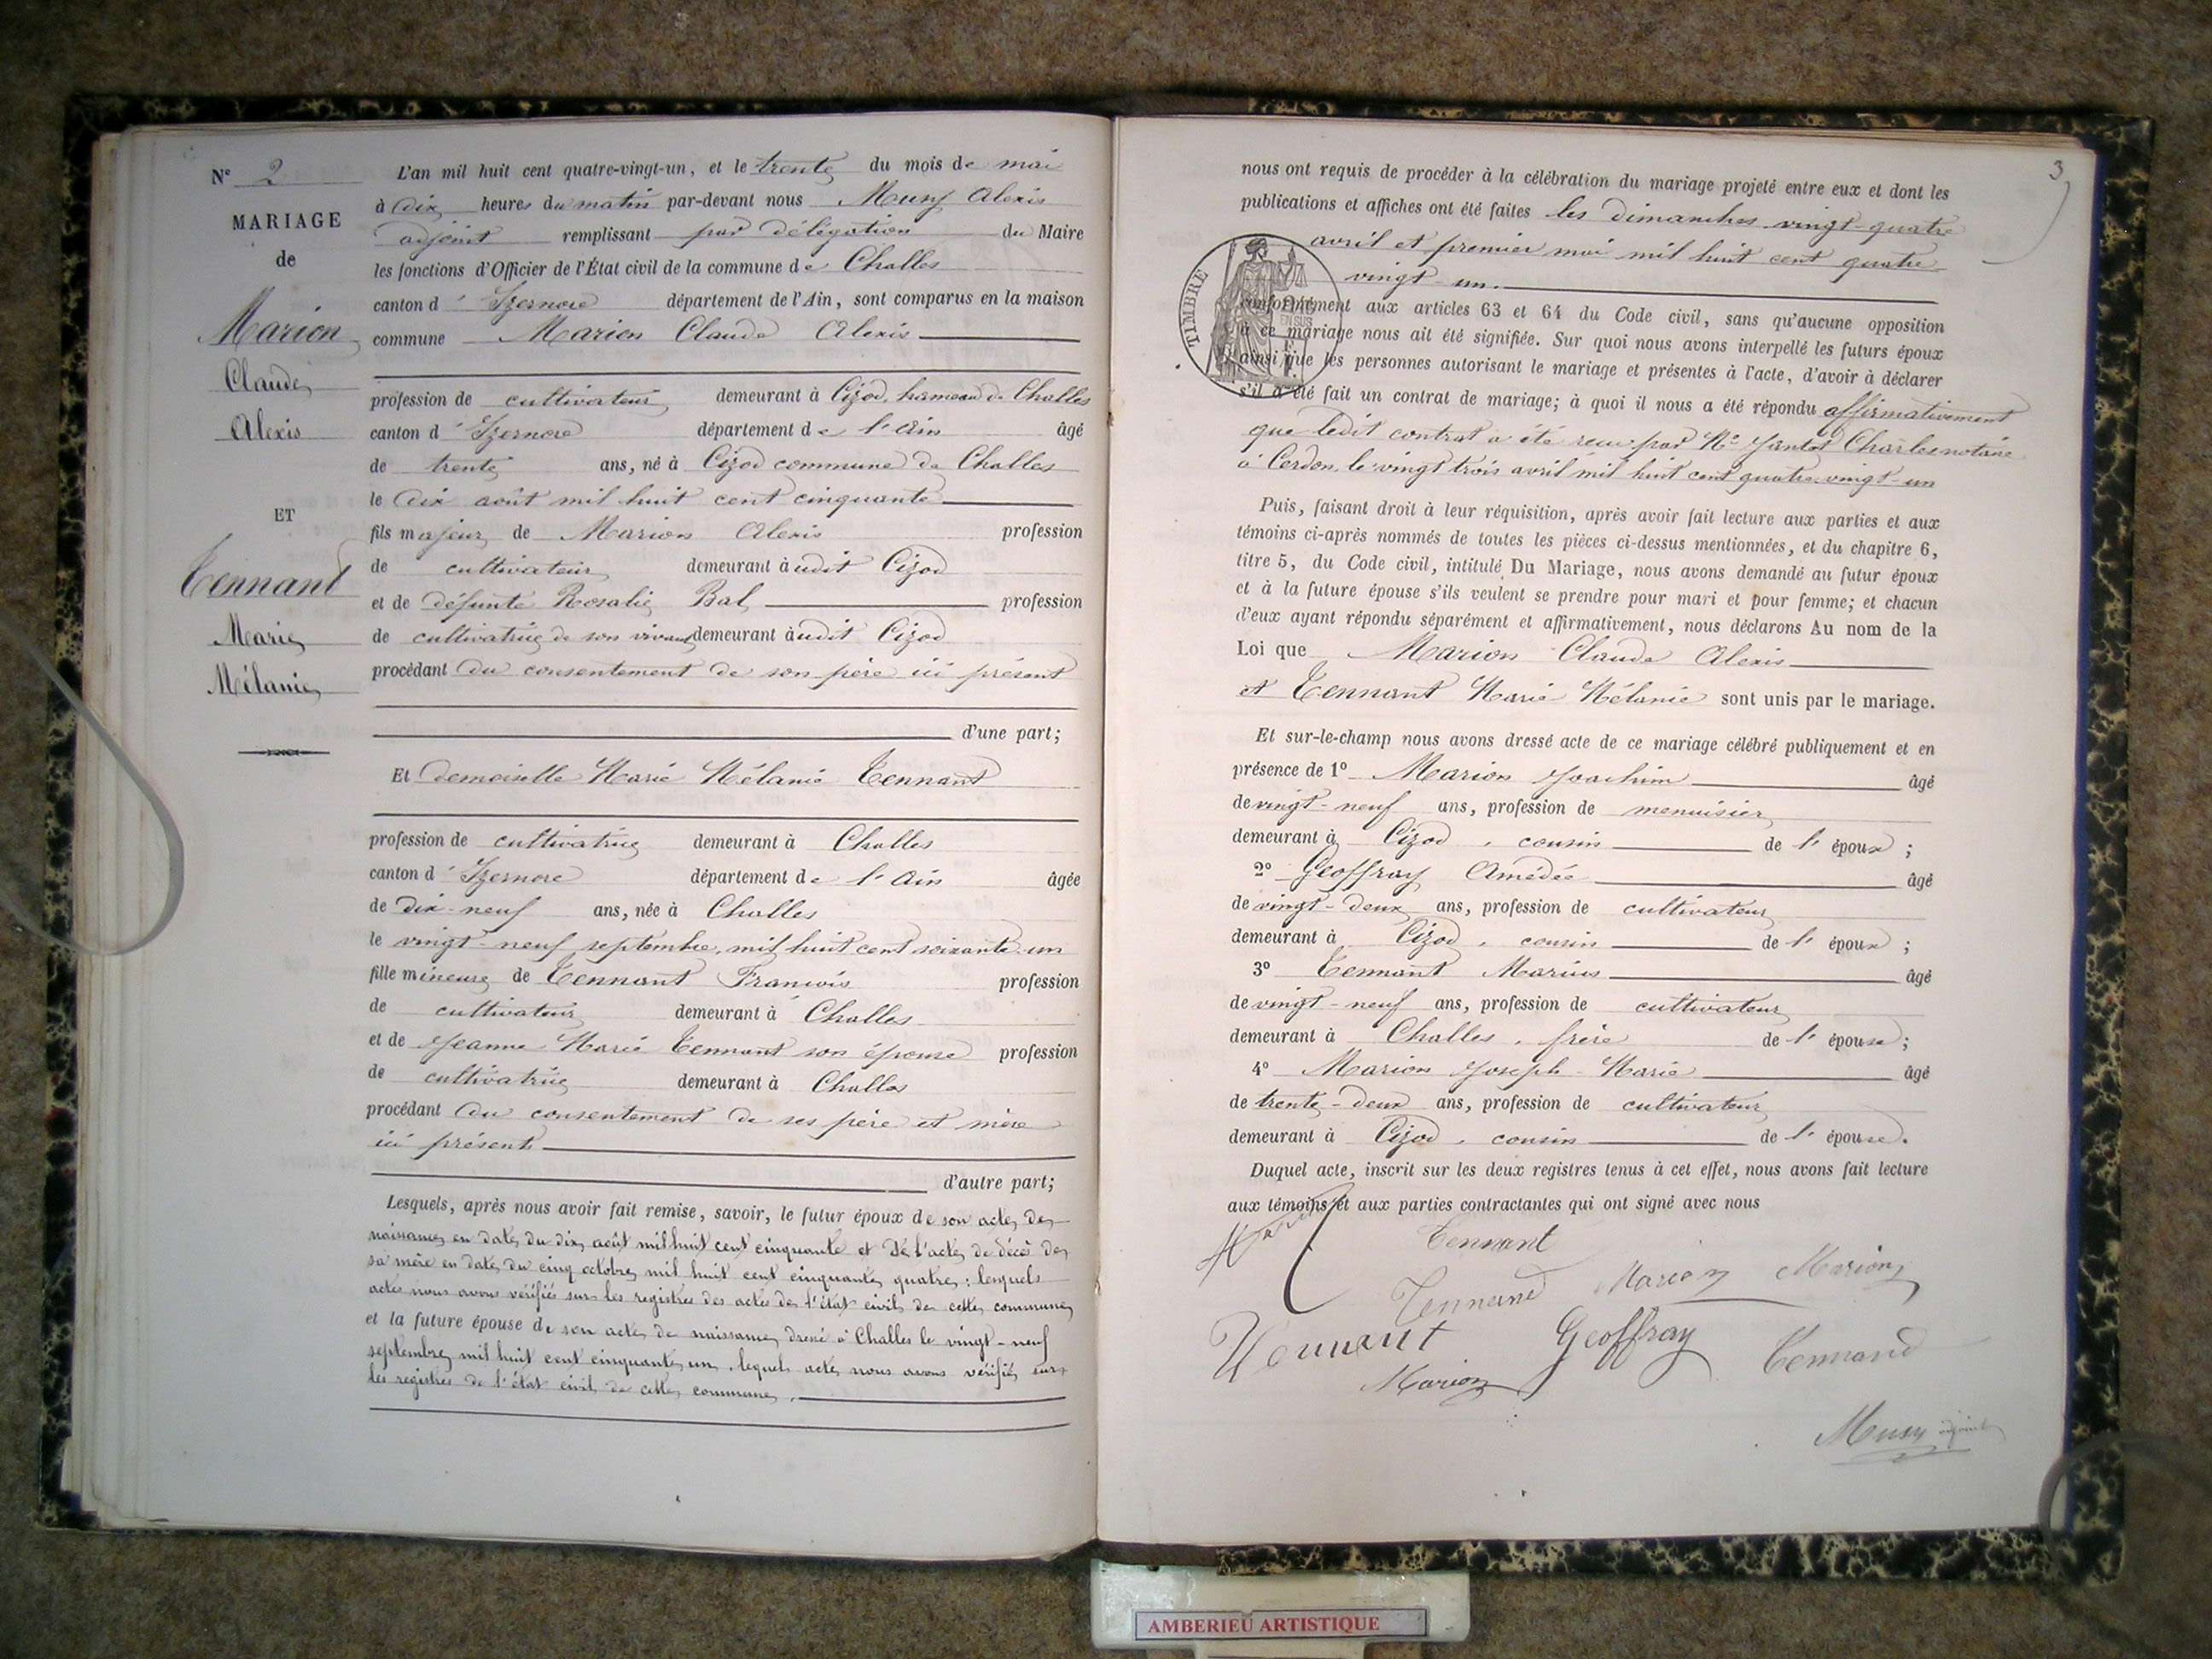 N° 2
MARIAGE
de
Marion
Claude
Alexis
ET
Tennant
Marie
Mélanie
L'an mil huit cent quatre-vingt-un, et le trente du mois de mai
à dix heures du matin par-devant nous Musy Alexis
adjoint remplissant par délégation du Maire
les fonctions d'Officier de l'État civil de la commune de Challes
canton d' Izernore département de l'Ain, sont comparus en la maison
commune Marion Claude Alexis
profession de cultivateur demeurant à Cizod, hameau de Challes
canton d' Izernore département de l'Ain âgé
de trente ans, né à Cizod commune de Challes
le dix août mil huit cent cinquante
fils majeur de Marion Alexis profession
de cultivateur demeurant àudit Cizod
et de défunte Rosalie Bal profession
de cultivatrice de son vivant demeurant àudit Cizod
procédant du consentement de son père ici présent
d'une part;
Et demoiselle Marie Mélanie Tennant
profession de cultivatrice demeurant à Challes
canton d' Izernore département de l'Ain âgée
de dix-neuf ans, née à Challes
le vingt-neuf septembre mil huit cent soixante-un
fille mineure de Tennant François profession
de cultivateur demeurant à Challes
et de Jeanne Marie Tennant son épouse profession
de cultivatrice demeurant à Challes
procédant du consentement de ses père et mère
ici présents
d'autre part;
Lesquels, après nous avoir fait remise, savoir, le futur époux de son acte de
naissance en date du dix août mil huit cent cinquante et de l'acte de décès de
sa mère en date du cinq octobre mil huit cent cinquante quatre; lesquels
actes nous avons vérifiés sur les registres des actes de l'état civil de cette commune
et la future épouse de son acte de naissance dressé à Challes le vingt-neuf
septembre mil huit cent cinquante un, lequel acte nous avons vérifié sur
les registres de l'état civil de cette commune.
3
nous ont requis de procéder à la célébration du mariage projeté entre eux et dont les
publications et affiches ont été faites les dimanches vingt-quatre
avril et premier mai mil huit cent quatre
vingt-un.
TIMBRE
conformément aux articles 63 et 64 du Code civil, sans qu'aucune opposition
à ce mariage nous ait été signifiée. Sur quoi nous avons interpellé les futurs époux
ainsi que les personnes autorisant le mariage et présentes à l'acte, d'avoir à déclarer
s'il a été fait un contrat de mariage; à quoi il nous a été répondu affirmativement
que ledit contrat a été reçu par Me Jantot Charles notaire
à Cerdon le vingt trois avril mil huit cent quatre-vingt-un
Puis, faisant droit à leur réquisition, après avoir fait lecture aux parties et aux
témoins ci-après nommés de toutes les pièces ci-dessus mentionnées, et du chapitre 6,
titre 5, du Code civil, intitulé Du Mariage, nous avons demandé au futur époux
et à la future épouse s'ils veulent se prendre pour mari et pour femme; et chacun
d'eux ayant répondu séparément et affirmativement, nous déclarons Au nom de la
Loi que Marion Claude Alexis
et Tennant Marie Mélanie sont unis par le mariage.
Et sur-le-champ nous avons dressé acte de ce mariage célébré publiquement et en
présence de 1° Marion Joachim âgé
de vingt-neuf ans, profession de menuisier
demeurant à Cizod, cousin de l'époux;
2° Geoffray Amédée âgé
de vingt-deux ans, profession de cultivateur
demeurant à Cizod, cousin de l'époux;
3° Tennant Marius âgé
de vingt-neuf ans, profession de cultivateur
demeurant à Challes, frère de l'épouse;
4° Marion Joseph-Marie âgé
de trente-deux ans, profession de cultivateur
demeurant à Cizod, cousin de l'épouse.
Duquel acte, inscrit sur les deux registres tenus à cet effet, nous avons fait lecture
aux témoins et aux parties contractantes qui ont signé avec nous
Tennant
Tennand Marion Marion
Tennant Geoffray Tennand
Marion
Musy adjoint
AMBERIEU ARTISTIQUE